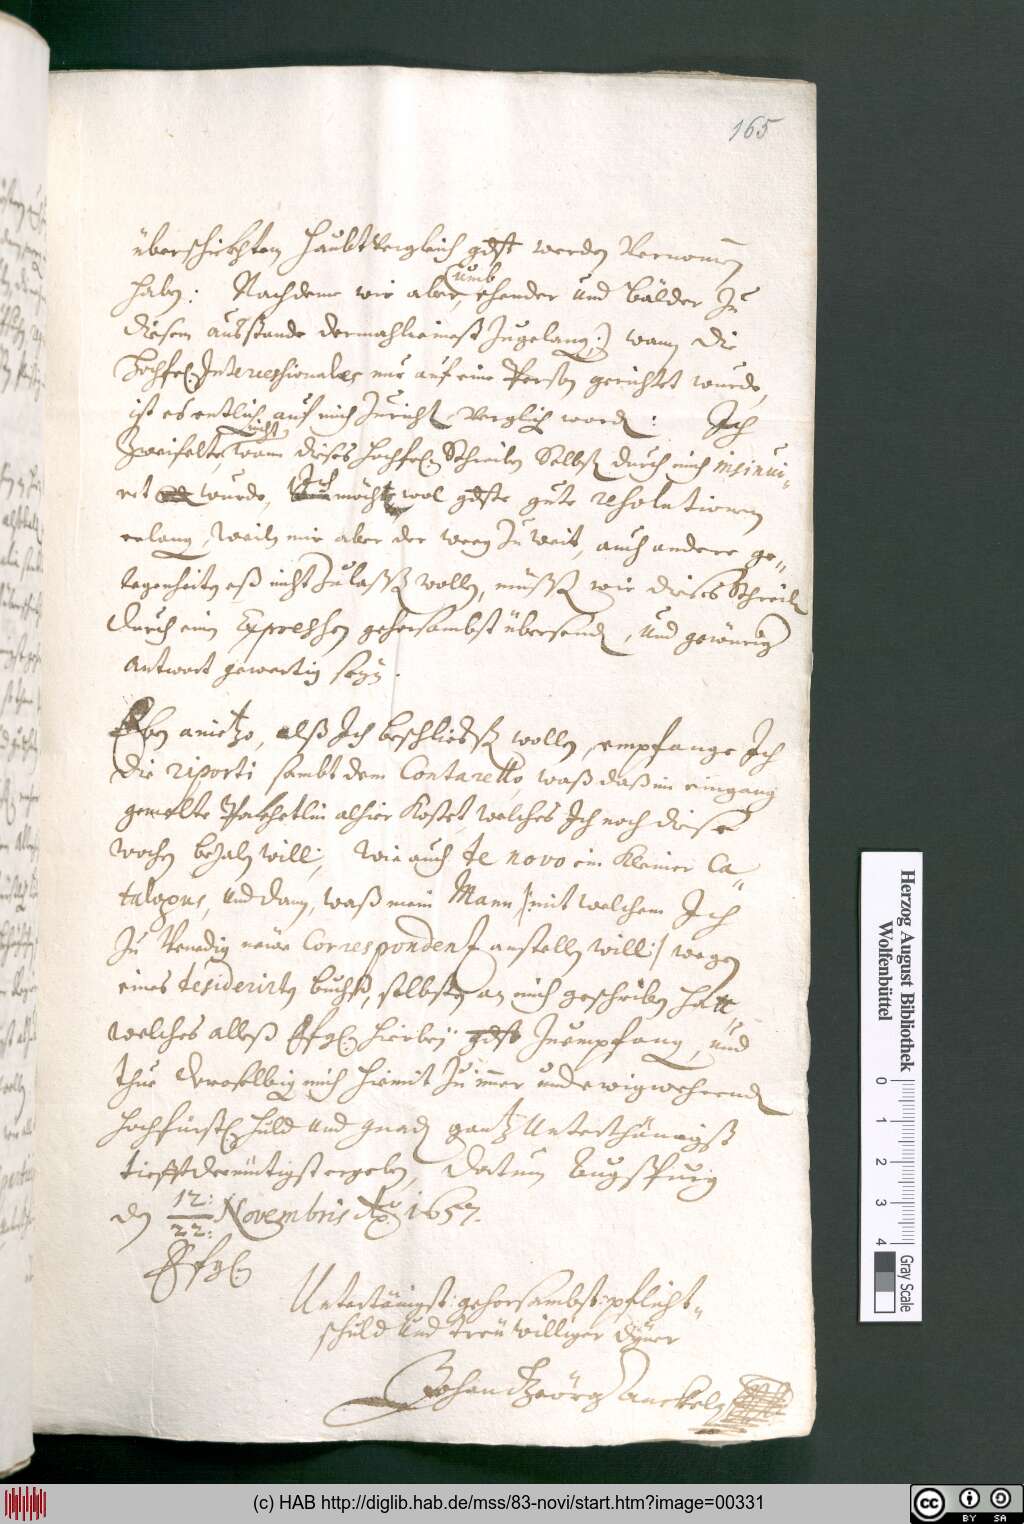 165
überschickhten haubt Vergleich gdst werden Vernomen
haben: Nachdeme wir aber, umb ehender und bälder zu
diesem ausstande dermahleinesß zugelangen;) wann die
Hochfrl. Intercessionales nur auf eine Person gerichtet wurde,
ist es entlich auf mich zuricht verglich word: Ich
Zweifelte nicht, wann dieses hochfrl. Schreiben Selbst durch mich insinui-
ret wurde, Ich möchte wol gdste gute resolutionen
erlangen, Weiln mir aber der weeg zu weit, auch andere ge-
legenheiten eß nicht zulassen wollen, müssen wir dieses Schreiben
durch einen Expressen gehorsambst übersenden, und gewürige
Antwort gewertig seyn.
Eben anietzo, alß Ich beschliessen wollen, empfange Ich
die riporti sambt dem Contaretto, waß daß im eingang
gemelte Packhetlin alhier kostet, welches Ich noch diese
wochen bezaln will; wie auch de novo ein kleiner Ca-
talogus, und dann, waß mein Mann /: mit welchem Ich
zu Venedig newe Correspondenz anstellen will :/ wegen
eines desiderirten buchß, selbsten an mich geschriben hatt,
welches alleß Efgl. hierbey gdst zuempfangen, und
thue deroselbigen mich hiemit zu immer und ewigwehrenden
hochfürstl. huld und gnaden gantz Unterthänigst
tieffstdemütigst ergeben, Datum Augspurg
den 12:/22: Novembris Ao. 1657.
Efgl.
Untertänigst: gehorsambst: pflicht-
schuld und treüwilliger dyner
Johan Geörg Anckel
Herzog August Bibliothek
Wolfenbüttel
0 1 2 3 4
Gray Scale
(c) HAB http://diglib.hab.de/mss/83-novi/start.htm?image=00331
cc BY SA